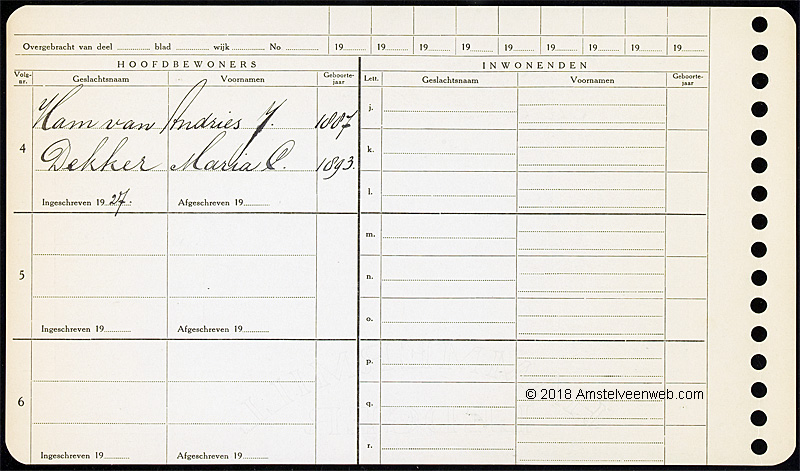 Overgebracht van deel ........ blad ........ wijk ........ No ........ 19 19 19 19 19 19 19 19 19
HOOFDBEWONERS INWONENDEN
Volg-nr. Geslachtsnaam Voornamen Geboorte-jaar Lett. Geslachtsnaam Voornamen Geboorte-jaar
Ham van Andries J. 1887 j.
4 k.
Dekker Maria C. 1893.
l.
Ingeschreven 19 27. Afgeschreven 19
m.
5 n.
o.
Ingeschreven 19 Afgeschreven 19
p.
© 2018 Amstelveenweb.com
6 q.
r.
Ingeschreven 19 Afgeschreven 19